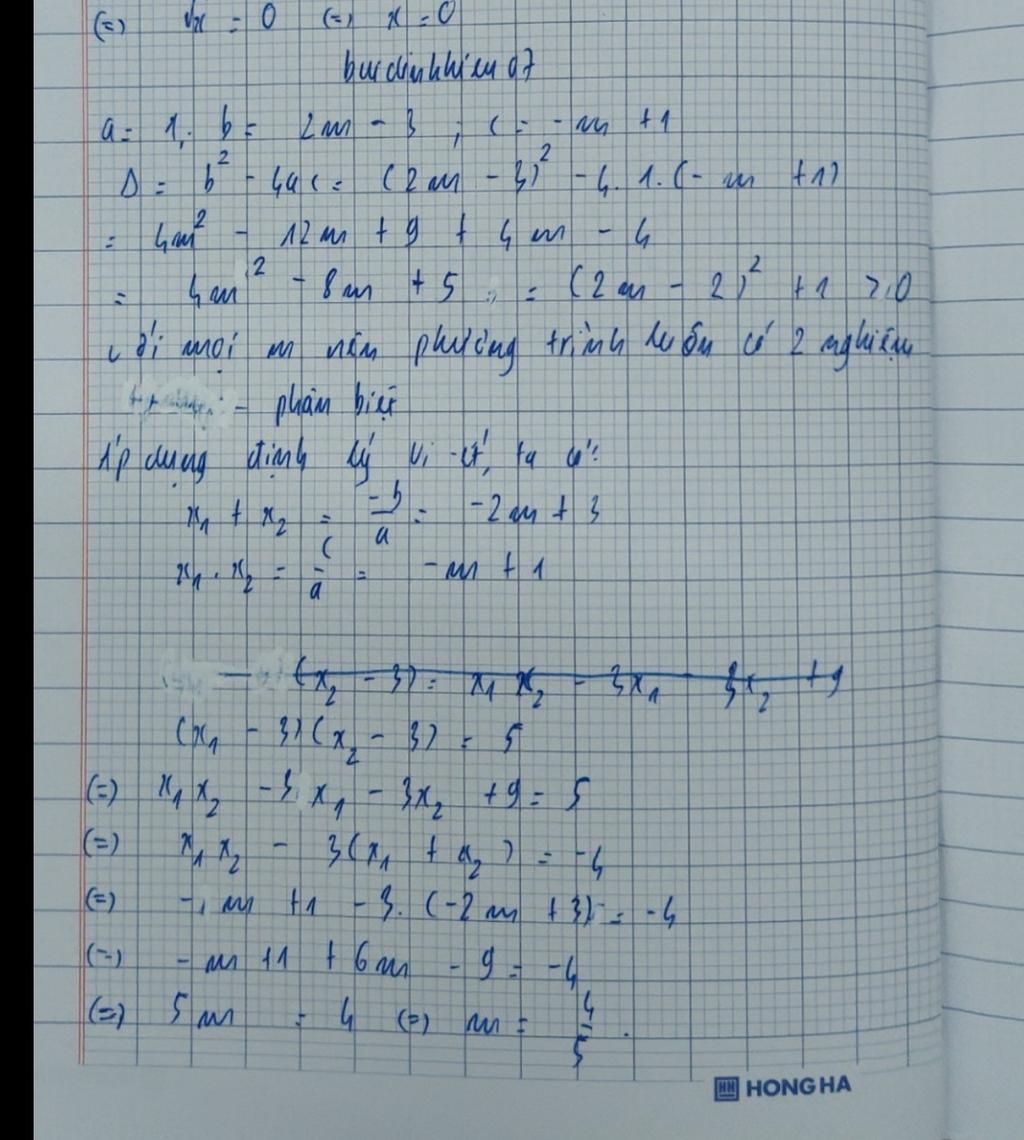 (=) √x = 0 (=) x = 0
buidinhhieu07
a = 1, b = 2m - 3 ; c = -m + 1
Δ = b² - 4ac = (2m - 3)² - 4.1.(-m + 1)
= 4m² - 12m + 9 + 4m - 4
= 4m² - 8m + 5 = (2m - 2)² + 1 > 0
với mọi m nên phương trình luôn có 2 nghiệm
- phân biệt
Áp dụng định lý vi-ét, ta có:
x₁ + x₂ = -b/a = -2m + 3
x₁ . x₂ = c/a = -m + 1
(x₂ - 3) = x₁ x₂ - 3x₁ - 3x₂ + 9
(x₁ - 3)(x₂ - 3) = 5
(=) x₁x₂ - 3x₁ - 3x₂ + 9 = 5
(=) x₁x₂ - 3(x₁ + x₂) = -4
(=) -m + 1 - 3.(-2m + 3) = -4
(=) -m + 1 + 6m - 9 = -4
(=) 5m = 4 (=) m = 4/5.
HH HONG HA